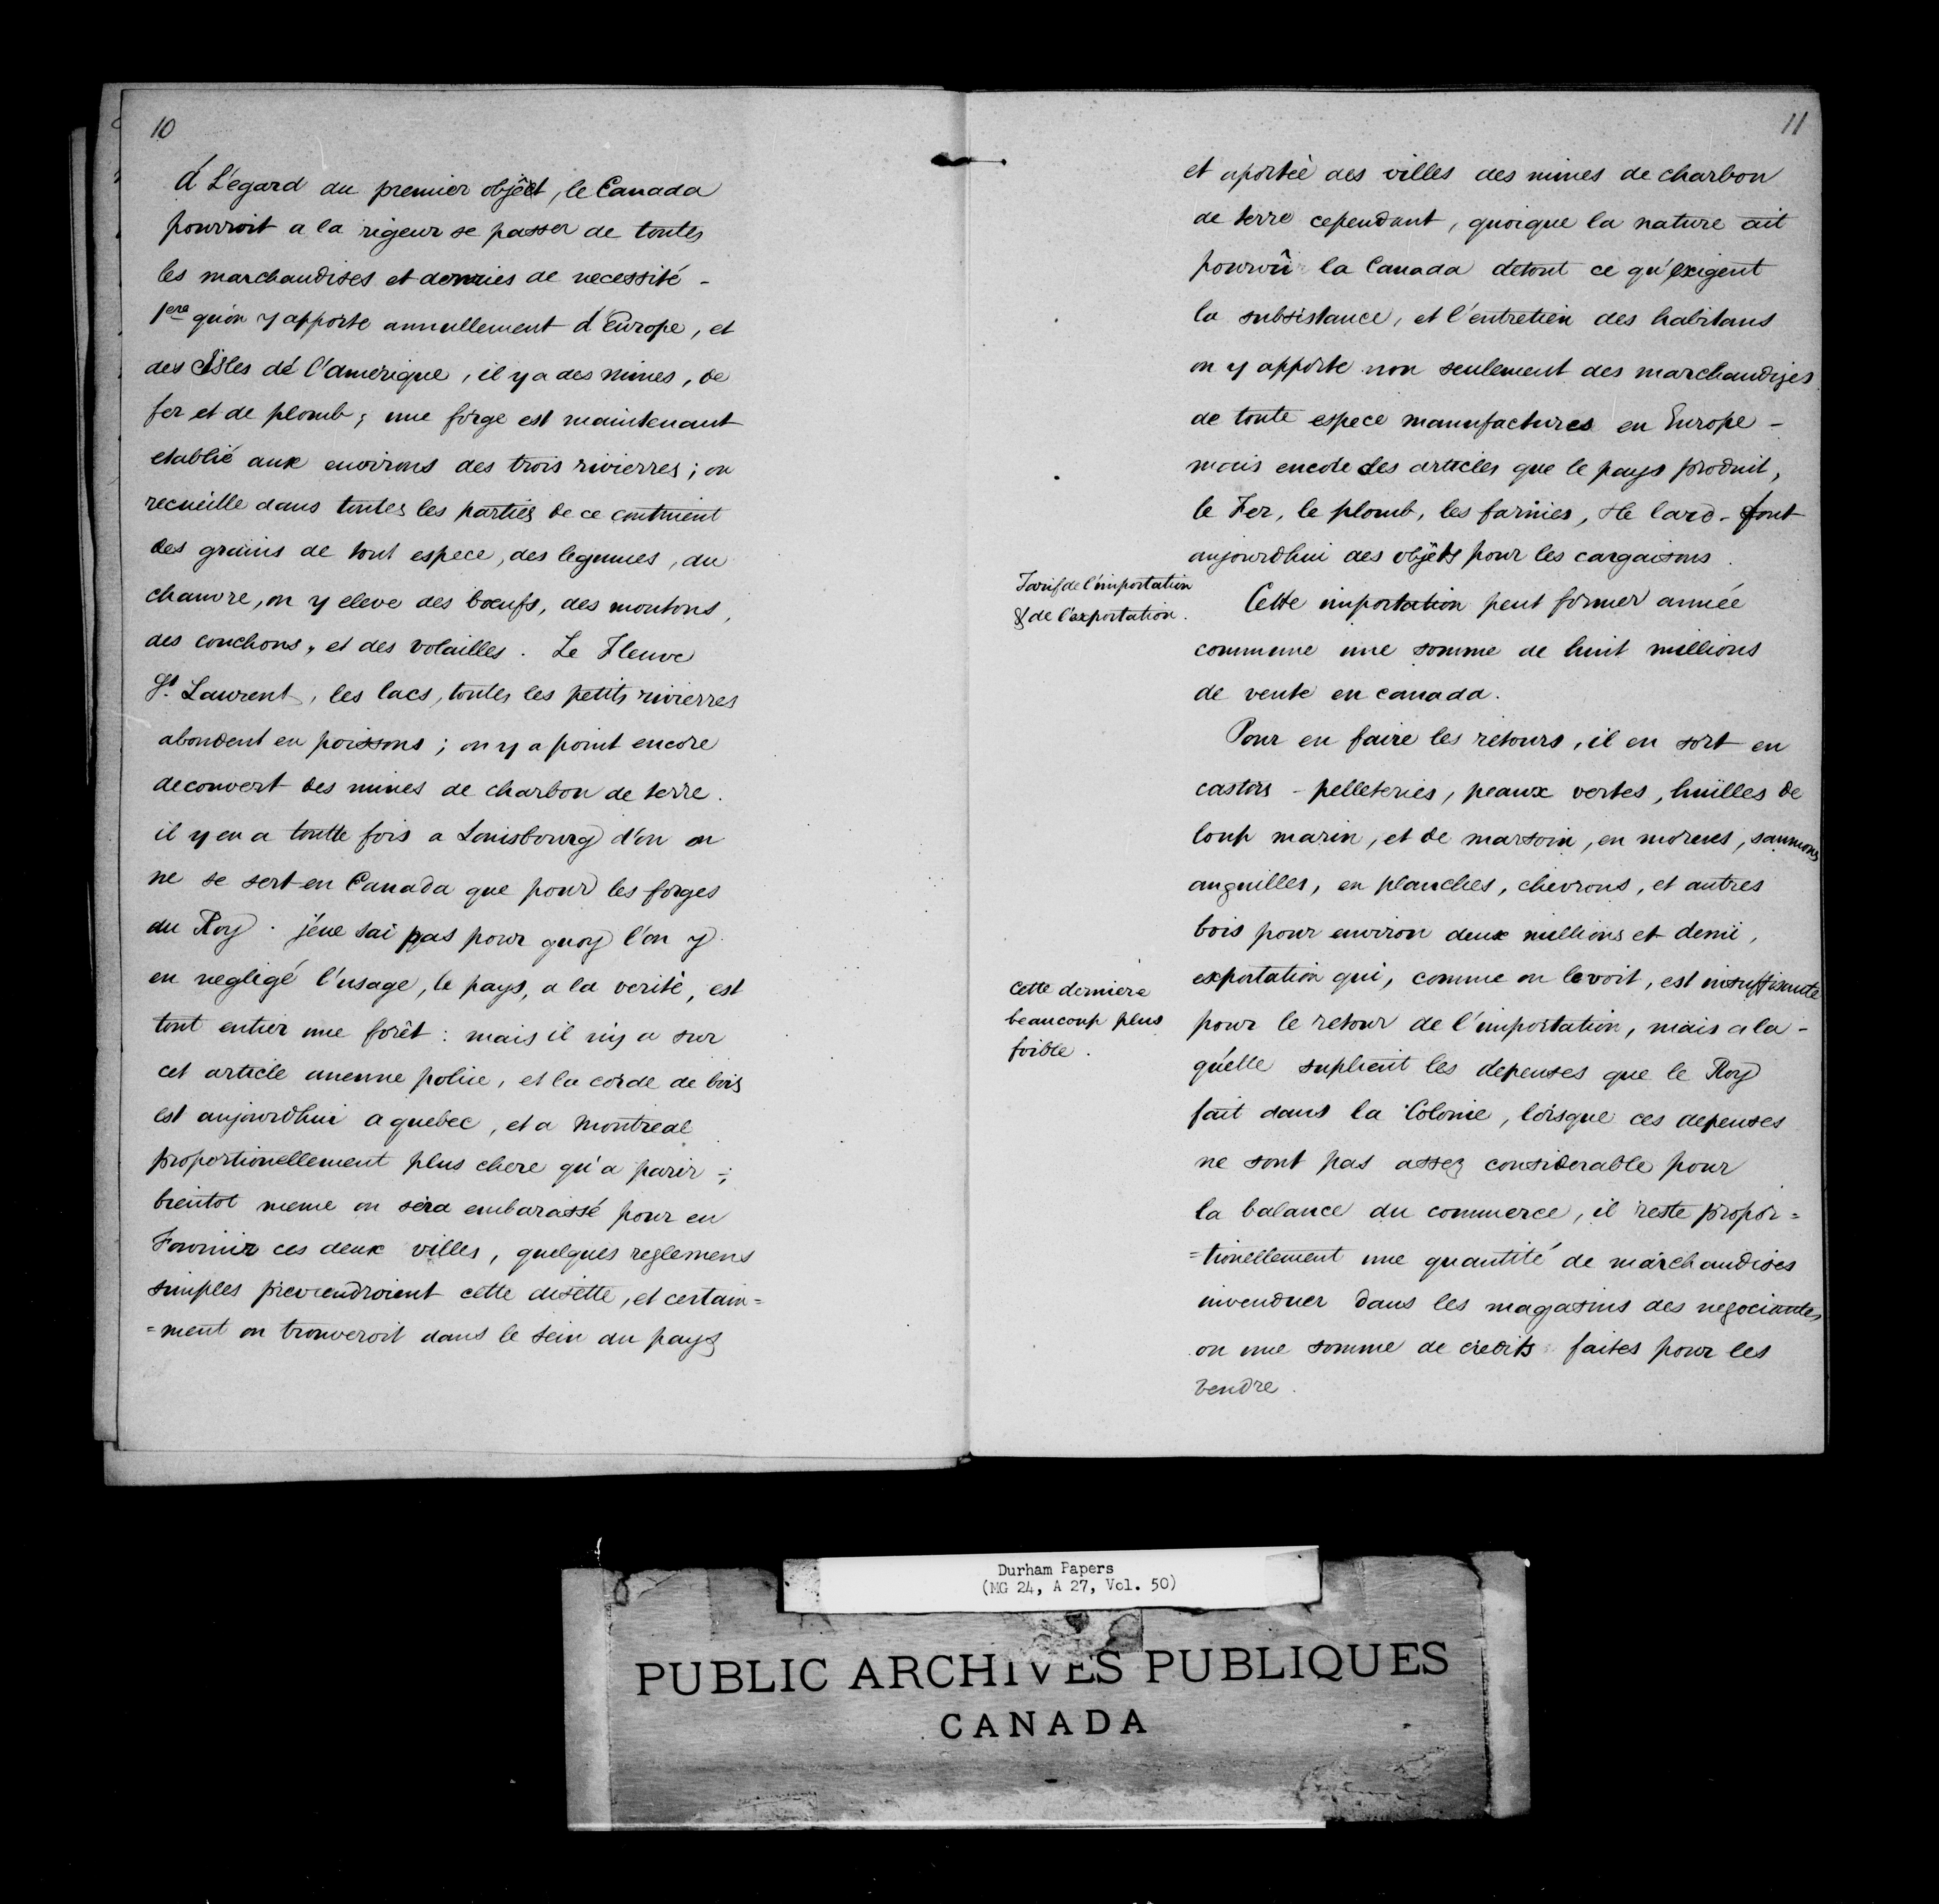 10
á L'egard du premier objêct, le Canada
pourroit a la rigeur se passer de toutes
les marchandises et denries de necessité -
1ere qu'on y apporte annullement d'Europe, et
des Isles dé l'amerique, il y a des mines, de
fer et de plomb; une forge est maintenant
etablié aux environs des trois rivierres; on
recueille dans toutes les parties de ce continent
des grains de tout espece, des legumes, du
chanvre, on y eleve des bœufs, des moutons,
des couchons, et des volailles. Le Fleuve
St. Laurent, les lacs, toutes les petits rivierres
abondent en poissons; on y a point encore
decouvert des mines de charbon de terre.
il y en a toutte fois a Louisbourg d'ou on
ne se sert en Canada que pour les forges
du Roy. jéne sai pas pour quoy l'on y
en negligé l'usage, le pays, a la verité, est
tout entier une forêt: mais il n'y a sur
cet article aucune police, et la corde de bois
est aujourdhui a quebec, et a Montreal
proportionellement plus chere qu'a parir -;
bientot meme on sera embarassé pour en
Fournir ces deux villes, quelques reglemens
simples previendroient cette disette, et certain=
=ment on trouveroit dans le sein du pays
11
et aportèe des villes des mines de charbon
de terre cependant, quoique la nature ait
pourvû la Canada detout ce qu'exigent
la subsistance, et l'entretien des habitans
on y apporte non seulement des marchandises
de toute espece manufactures en Europe -
mais encore des articles que le pays produit,
le Fer, le plomb, les farines, le lard - font
aujourdhui des objêts pour les cargaisons.
Tarif de l'importation
& de l'exportation.
Cette importation peut former année
commune une somme de huit millions
de vente en canada.
Pour en faire les retours, il en sort en
castors - pelleteries, peaux vertes, huilles de
loup marin, et de marsoin, en morues, saumons
anguilles, en planches, chevrons, et autres
bois pour environ deux millions et demi,
Cette derniere
beaucoup plus
foible.
exportation qui, comme on levoit, est insuffisante
pour le retour de l'importation, mais a la -
qu'elle suplieut les depenses que le Roy
fait dans la Colonie, lorsque ces depenses
ne sont pas assez considerable pour
la balance du commerce, il reste propor=
=tionellement une quantité de marchandises
invenduer dans les magasins des negociantes
ou une somme de credits faites pour les
vendre.
Durham Papers
(MG 24, A 27, Vol. 50)
PUBLIC ARCHIVES PUBLIQUES
CANADA